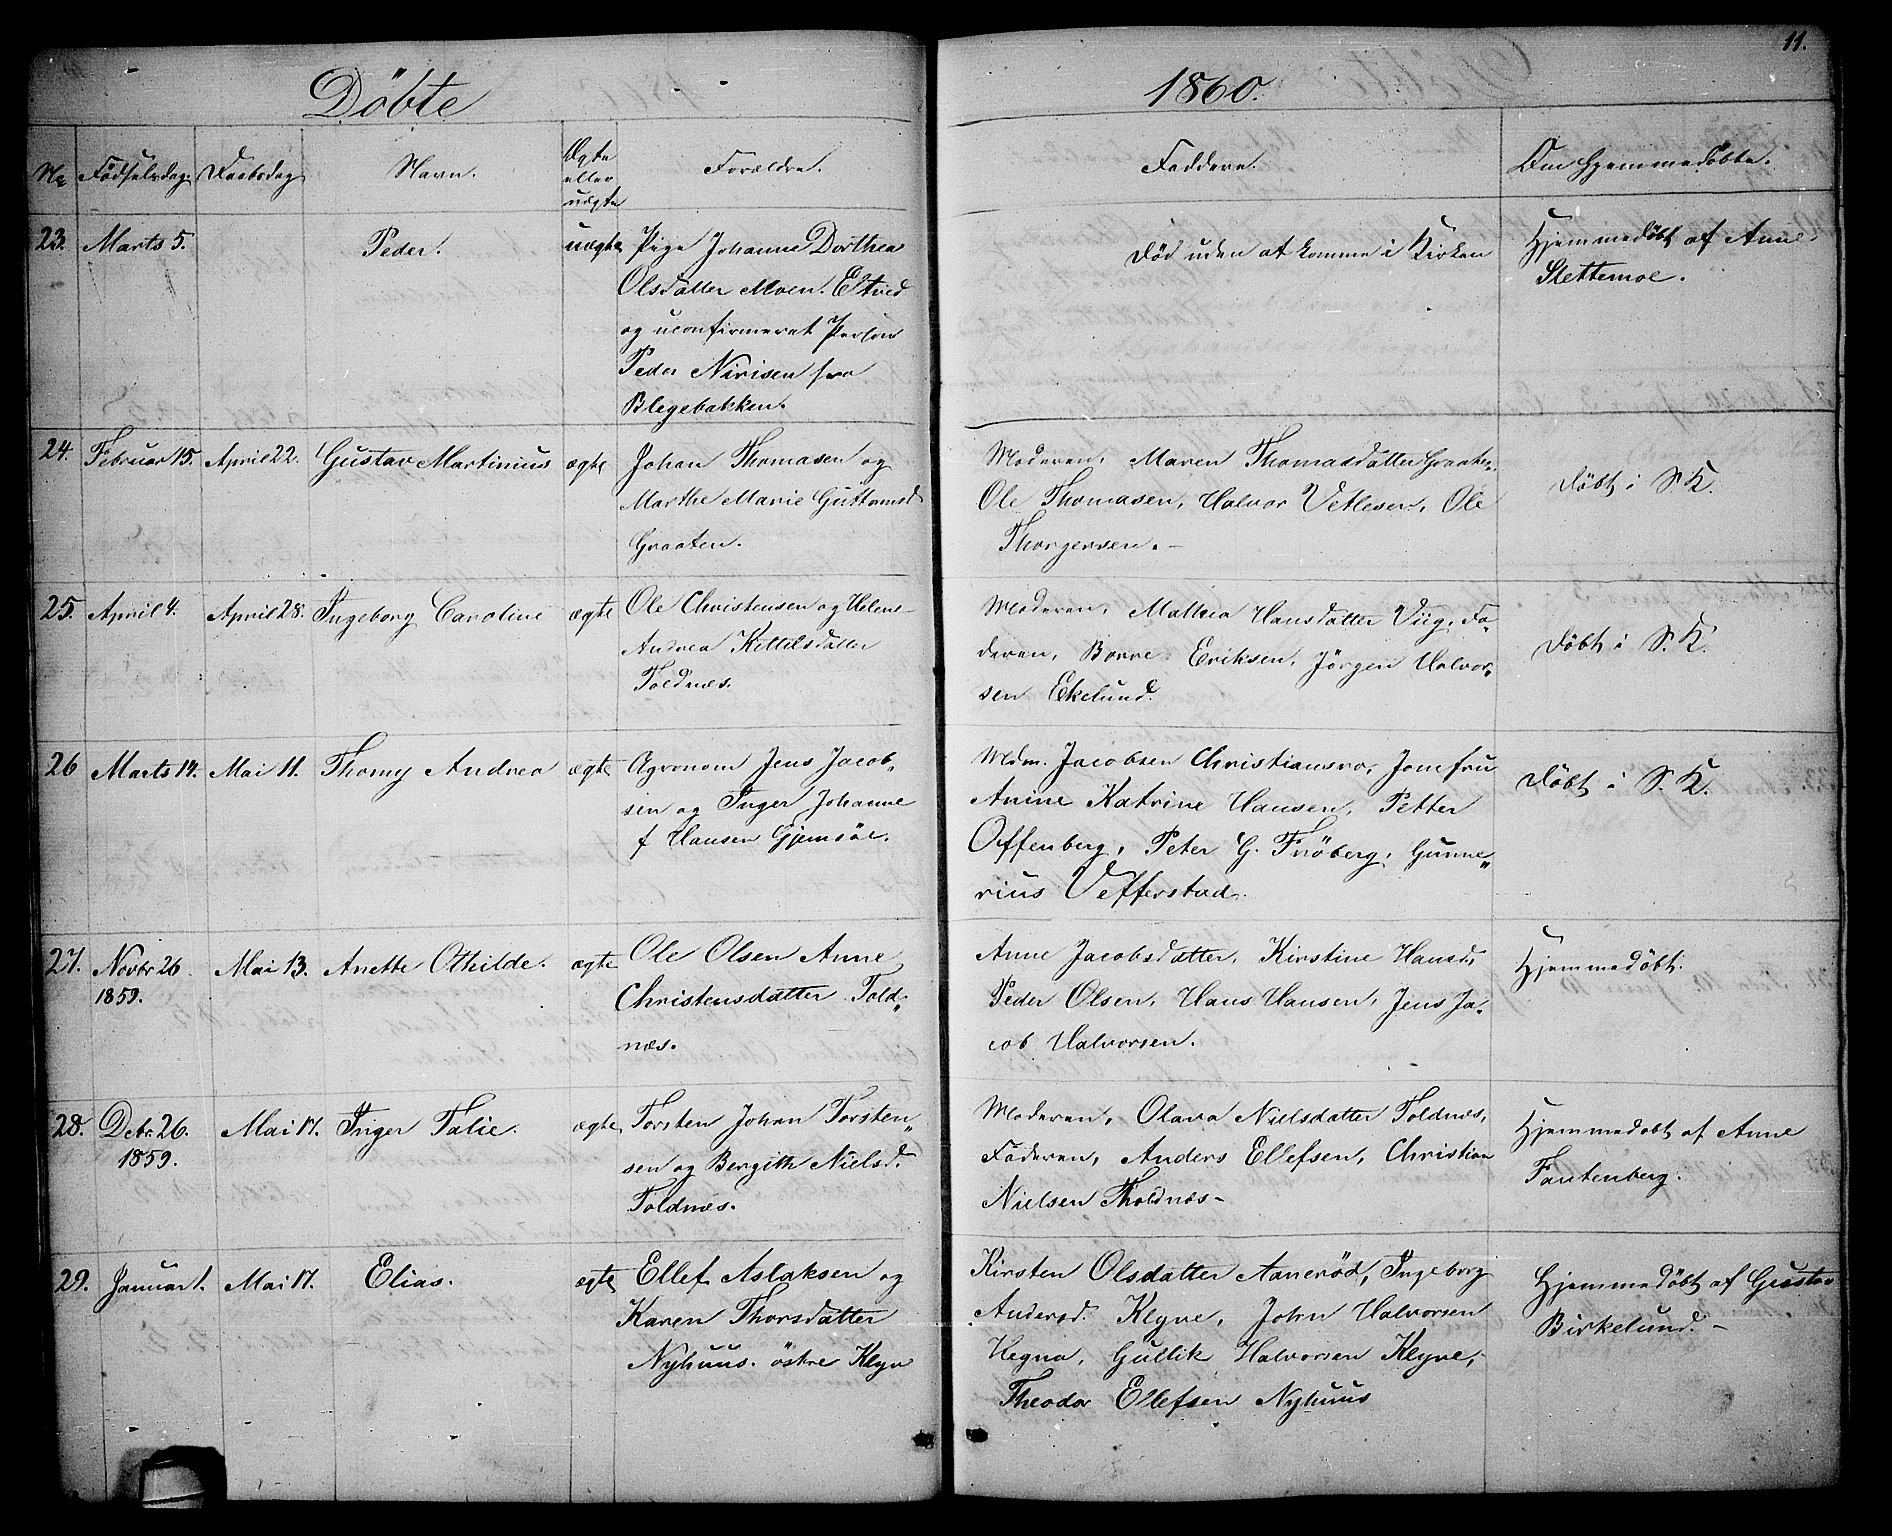 11.
Döbte
1860.
No Födselsdag. Daabsdag Navn. Ægte eller uægte Forældre. Faddere. Om Hjemmedöbte.
23. Marts 5. Peder. uægte Pige Johanne Dorthea
Olsdatter Moen. Eltved
og uconfirmeret Person
Peder Nirisen fra
Blegebakken.
Död uden at komme i Kirken
Hjemmedöbt af Anne
Slettemoe.
24. Februar 15. April 22. Gustav Martinius ægte Johan Thomasen og
Marthe Marie Guttormsd
Graaten.
Moderen, Maren Thomasdatter Graaten,
Ole Thomasen, Halvor Vetlesen, Ole
Thorgersen. -
Döbt i S. K.
25. April 4. April 28. Ingeborg Caroline ægte Ole Christensen og Helene
Andrea Kittilsdatter
Toldnæs.
Moderen, Mathea Hansdatter Viig, Fa-
deren, Borre Eriksen, Jörgen Halvor-
sen Ekelund.
Döbt i S. K.
26 Marts 14. Mai 11. Thomy Andrea ægte Agronom Jens Jacob-
sen og Inger Johanne
f Hansen Gjemsöe.
Mdm. Jacobsen Christiansra, Jomfru
Anine Katrine Hansen, Petter
Offenberg, Peter G. Fröberg, Gunne-
rius Vefferstad.
Döbt i S. K.
27. Novbr 26 1859. Mai 13. Anette Othilde. ægte Ole Olsen Anne
Christensdatter Told-
næs.
Anne Jacobsdatter, Kirstine Hansd,
Peder Olsen, Hans Hansen, Jens Ja-
cob Halvorsen.
Hjemmedöbt.
28. Debr. 26. 1859. Mai 17. Inger Talie. ægte Torsten Johan Torsten-
sen og Bergith Nielsd.
Toldnæs.
Moderen, Olava Nielsdatter Toldnæs,
Faderen, Anders Ellefsen, Christian
Nielsen Tholdnæs -
Hjemmedöbt af Anne
Fantenberg.
29. Januar 1. Mai 17. Elias. ægte Ellef Aslaksen og
Karen Thorsdatter
Nyhuus. östre Klyve
Kirsten Olsdatter Aanerød, Ingeborg
Andersd. Klyve, John Halvorsen
Hegna, Gullik Halvorsen Klyve,
Theodor Ellefsen Nyhuus
Hjemmedöbt af Gustav
Birkelund. -